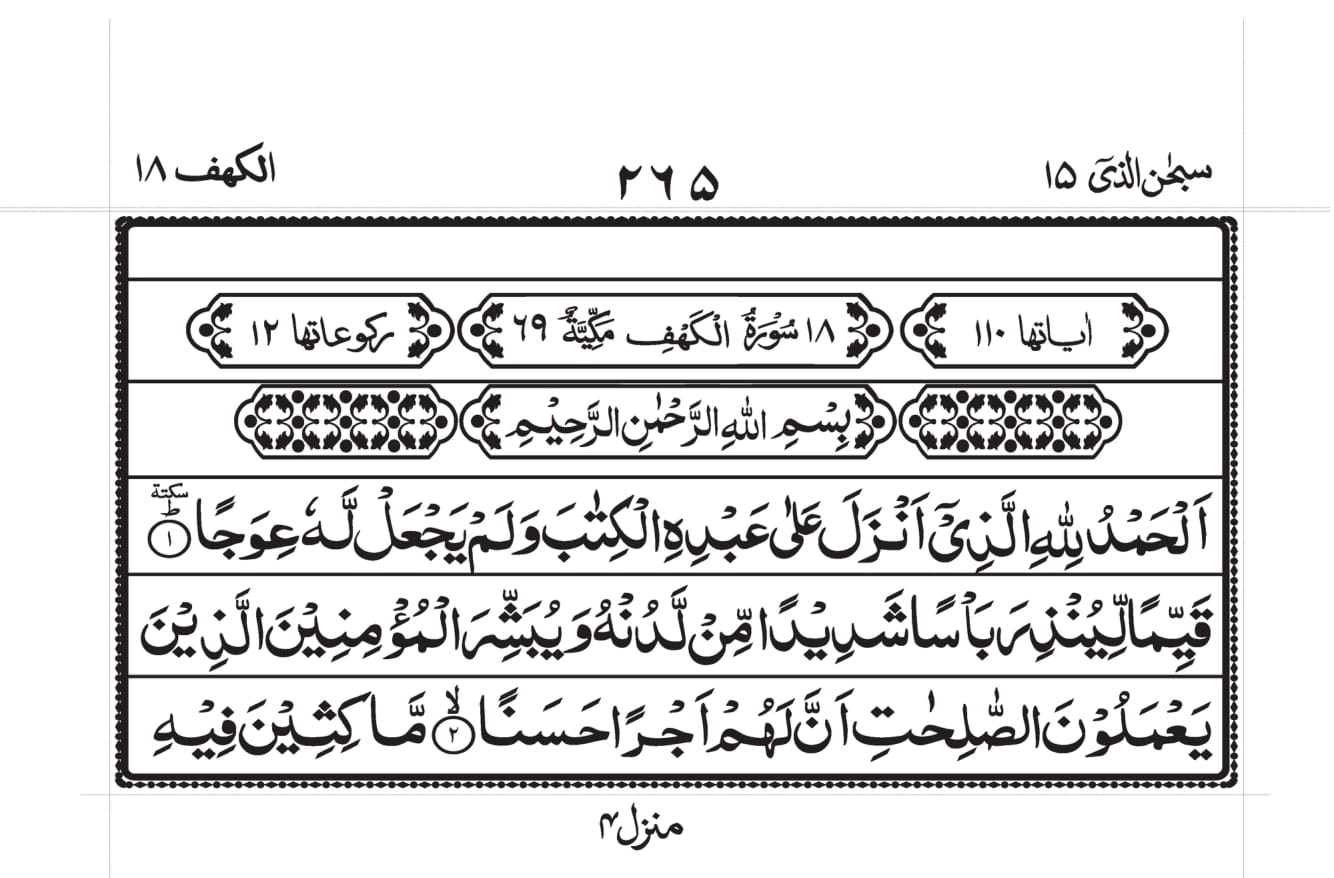 سبحٰن الذیٓ ۱۵ ۲۶۵ الکھف ۱۸
اٰیاتھا ۱۱۰ ۱۸ سُوْرَۃُ الْکَھْفِ مَکِّیَّۃٌ ۶۹ رکوعاتھا ۱۲
بِسْمِ اللّٰہِ الرَّحْمٰنِ الرَّحِیْمِ
اَلْحَمْدُ لِلّٰہِ الَّذِیْۤ اَنْزَلَ عَلٰی عَبْدِہِ الْکِتٰبَ وَلَمْ یَجْعَلْ لَّہٗ عِوَجًا ؕ سکتۃ ۱
قَیِّمًا لِّیُنْذِرَ بَاْسًا شَدِیْدًا مِّنْ لَّدُنْہُ وَ یُبَشِّرَ الْمُؤْمِنِیْنَ الَّذِیْنَ
یَعْمَلُوْنَ الصّٰلِحٰتِ اَنَّ لَھُمْ اَجْرًا حَسَنًا ۙ ۲ مَّاکِثِیْنَ فِیْہِ
منزل ۴